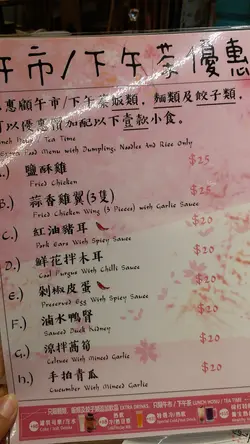 午市/下午茶優惠
惠顧午市/下午茶飯類,麵類及餃子類,
可以優惠價加配以下壹款小食。
Lunch Menu / Tea Time
Extra Food Menu with Dumpling, Noodles and Rice Only
鹽酥雞 $25
Fried Chicken
B.) 蒜香雞翼(3隻) $25
Fried Chicken Wing (3 Pieces) with Garlic Sauce
C.) 紅油豬耳 $20
Pork Ears With Spicy Sauce
D.) 鮮花拌木耳 $20
Cool Fungus With Chilli Sauce
E.) 剁椒皮蛋 $20
Preserved Egg With Spicy Sauce
F.) 滷水鴨腎 $20
Sauced Duck Kidney
G.) 涼拌萵筍 $20
Celtuce With Minced Garlic
H.) 手拍青瓜 $20
Cucumber With Minced Garlic
EXTRA DRINKS
LUNCH MENU / TEA TIME